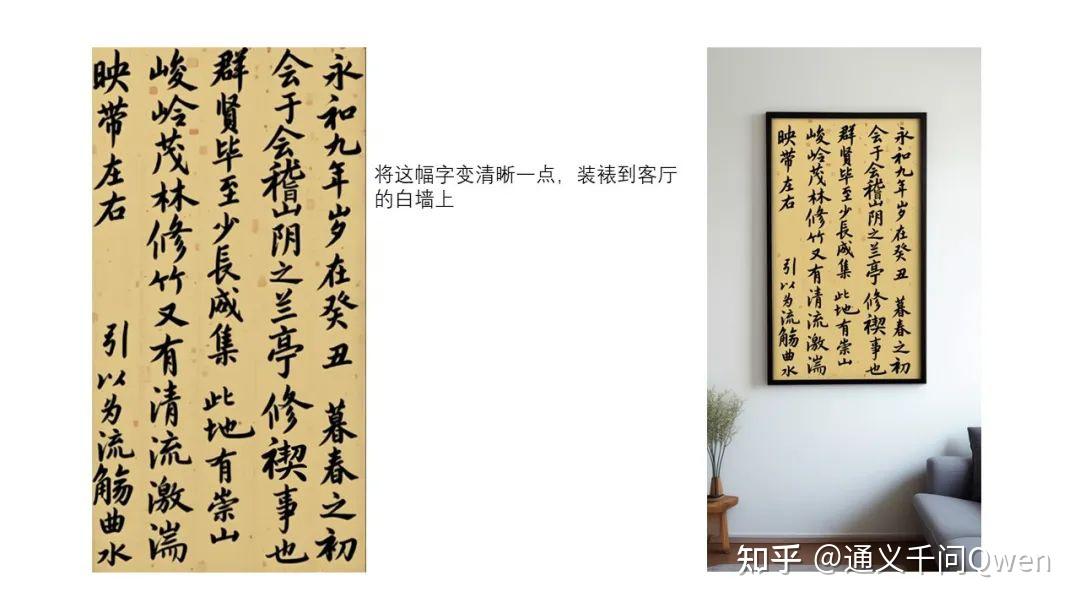 永和九年岁在癸丑 暮春之初
会于会稽山阴之兰亭 修禊事也
群贤毕至少長咸集 此地有崇山
峻岭茂林修竹又有清流激湍
映带左右 引以为流觞曲水
将这幅字变清晰一点，装裱到客厅
的白墙上
永和九年岁在癸丑 暮春之初
会于会稽山阴之兰亭 修禊事也
群贤毕至少長咸集 此地有崇山
峻岭茂林修竹又有清流激湍
映带左右 引以为流觞曲水
知乎 @通义千问Qwen